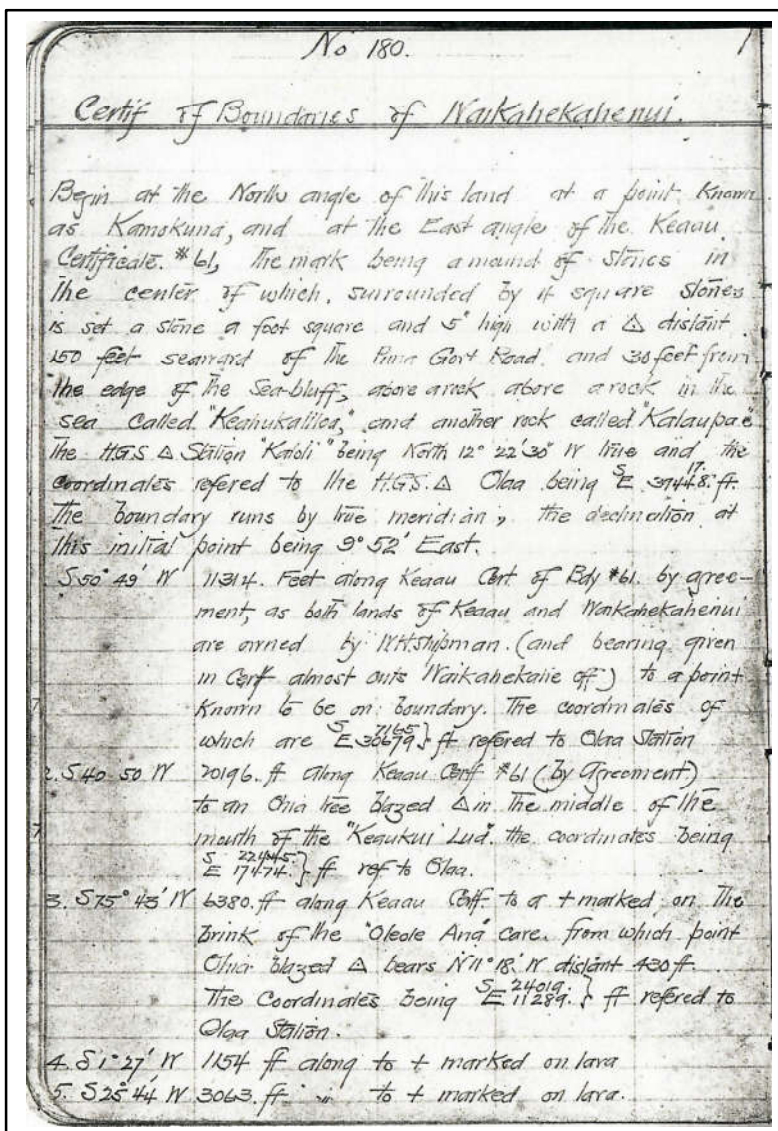 No 180.
Certif of Boundaries of Waikahekahenui.
Begin at the North angle of this land at a point known
as Kamokuna, and at the East angle of the Keaau
Certificate. #61, the mark being a mound of stones in
the center of which, surrounded by 4 square stones
is set a stone a foot square and 5" high with a △ distant
150 feet seaward of the Puna Govt Road. and 30 feet from
the edge of the Sea-bluff, above a rock above a rock in the
sea called "Keahukaliloa," and another rock called "Kalaupae"
the H.G.S △ Station "Kaloli" being North 12° 22' 30" W true and the
coordinates refered to the H.G.S. △ Olaa being S 17. E 37448. ft.
The boundary runs by true meridian, the declination at
this initial point being 9° 52' East.
S 50° 49' W 11314. Feet along Keaau Cert. of Bdy #61. by agree-
ment, as both lands of Keaau and Waikahekahenui
are owned by W.H. Shipman. (and bearing given
in Cerf almost cuts Waikahekahe off) to a point
known to be on boundary. The coordinates of
which are S 7165 E 30679 } ft refered to Olaa Station
2. S 40° 50 W 20196. ft along Keaau Cerf #61 (by Agreement)
to an Ohia tree blazed △ in the middle of the
mouth of the "Keaukui Lua". the coordinates being
S 22445. E 17474. } ft ref to Olaa.
3. S 75° 43' W 6380. ft along Keaau Cerf. to a + marked on the
brink of the "Oleole Ana" cave. from which point
Ohia blazed △ bears N 11° 18' W distant 430 ft.
The Coordinates being S 24019. E 11289. } ft refered to
Olaa Station.
4. S 1° 27' W 1154 ft along to + marked on lava
5. S 25° 44' W 3063. ft " to + marked on lava.